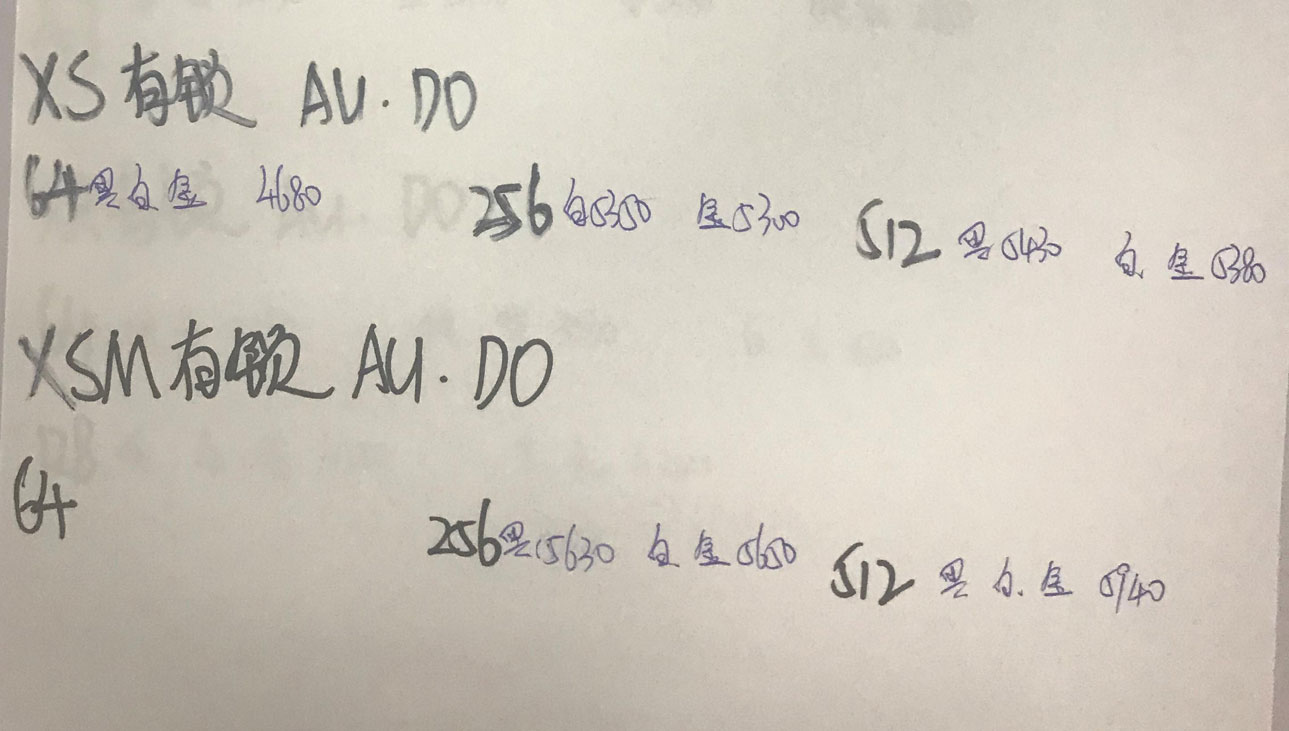 XS有锁 AU.DO
64黑白金 4680 256白5350 金5300 512黑5430 白金5380
XSM有锁 AU.DO
64 256黑5630 白金5650 512黑白.金 5940